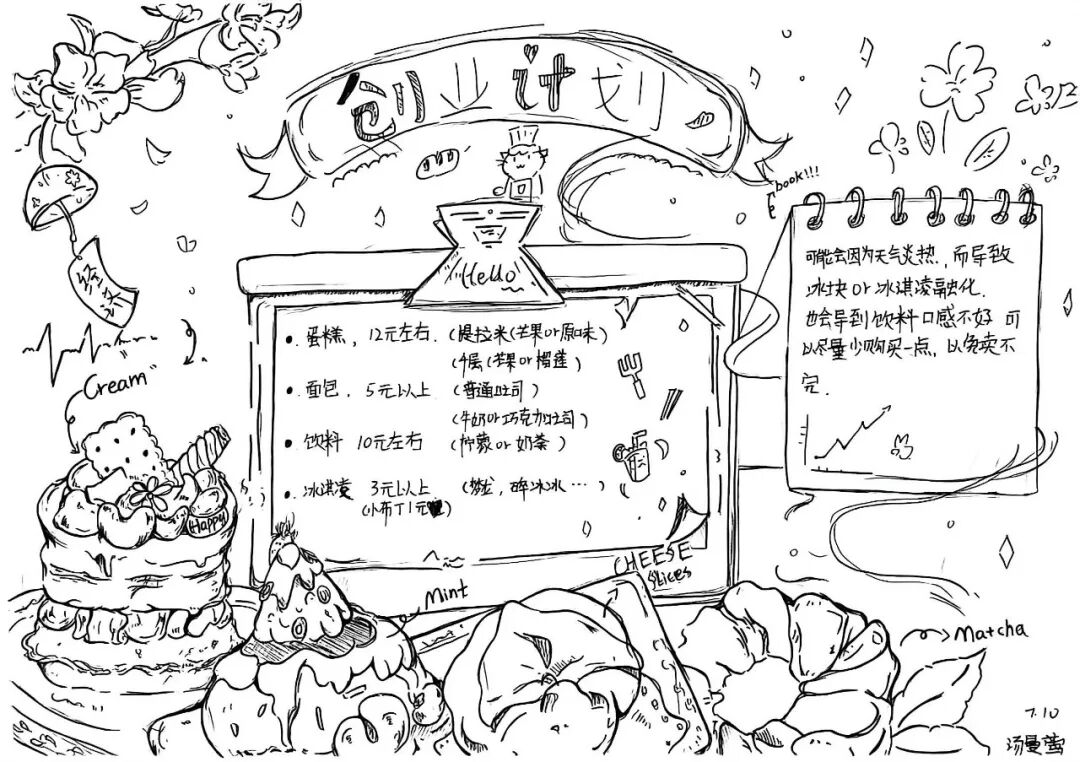 创业计划
book!!!
经济
Hello
Cream
• 蛋糕, 12元左右. (提拉米(芒果or原味)
(千层(芒果or榴莲)
• 面包. 5元以上 (普通吐司)
(牛奶or巧克力吐司)
• 饮料 10元左右 (柠蒙or奶茶)
• 冰淇凌 3元以上 (梦龙, 碎冰冰…)
(小布丁1元)
可能会因为天气炎热, 而导致
冰块or冰淇凌融化.
也会导到饮料口感不好 可
以尽量少购买一点, 以免卖不
完.
Happy
CHEESE
slices
Mint
Matcha
7.10
汤曼莺